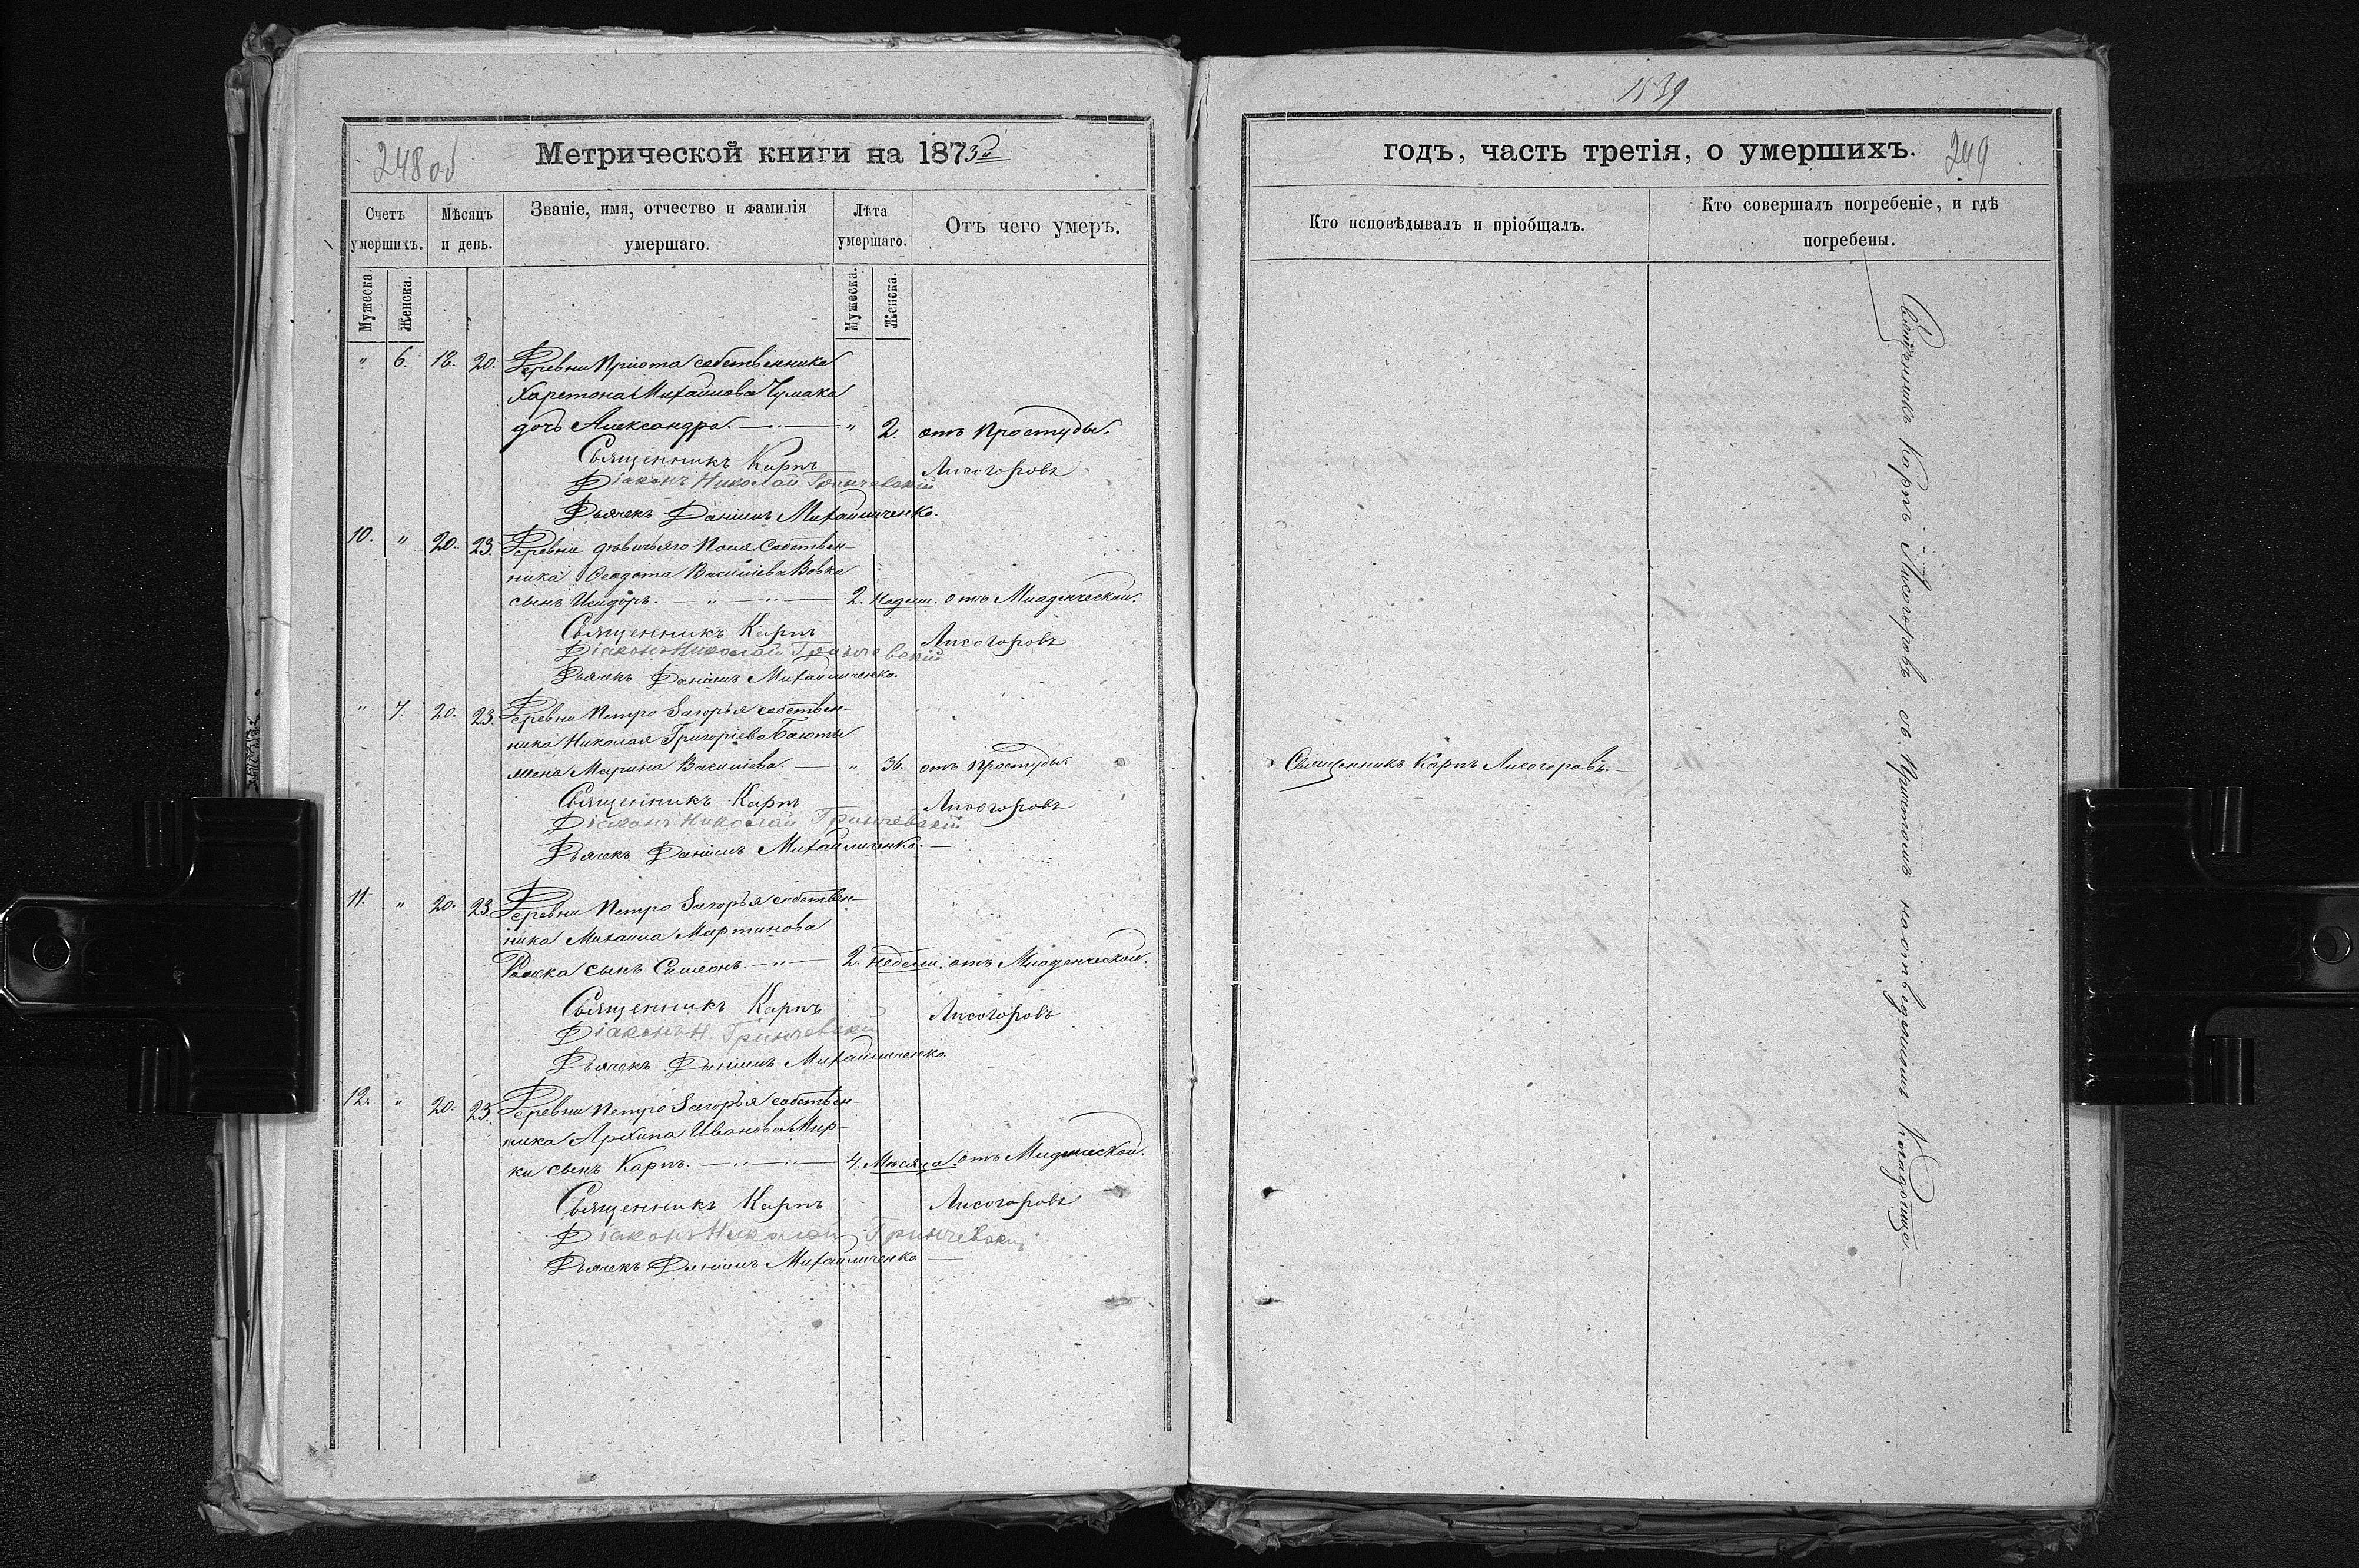 248 об
Метрической книги на 1873й
Счетъ умершихъ.
Мѣсяцъ и день.
Званіе, имя, отчество и фамилія умершаго.
Лѣта умершаго.
Отъ чего умеръ.
Мужеска.
Женска.
Мужеска.
Женска.
" 6. 18. 20. Деревни Пріюта собственника
Харетона Михайлова Чумака
дочь Александра. — " 2. отъ простуды.
Священникъ Карпъ Лисогоровъ
Діаконъ Николай Гринчевскій
Дьячекъ Даніилъ Михайличенко.
10. " 20. 23. Деревни дѣвичьяго Поля Собствен-
ника Феодота Василіева Вовка
сынъ Исидоръ. — " — " — 2. недели. отъ Младенческой.
Священникъ Карпъ Лисогоровъ
Діаконъ Николай Гринчевскій
Дьячекъ Даніилъ Михайличенко.
" 7. 20. 23. Деревни Петро Загорья собствен-
ника Николая Григоріева Баюты
жена Марина Василіева. — " 36. отъ простуды.
Священникъ Карпъ Лисогоровъ
Діаконъ Николай Гринчевскій
Дьячекъ Даніилъ Михайличенко. —
11. " 20. 23. Деревни Петро Загорья собствен-
ника Михаила Мартинова
сынъ Симеонъ. — " — 2. недели. отъ Младенческой.
Священникъ Карпъ Лисогоровъ
Діаконъ Н. Гринчевскій
Дьячекъ Даніилъ Михайличенко
12. " 20. 23. Деревни Петро Загорья собствен-
ника Архипа Иванова Мир-
ки сынъ Карпъ. — " — " — 4. Мѣсяца. отъ Младенческой.
Священникъ Карпъ Лисогоровъ
Діаконъ Николай Гринчевскій
Дьячекъ Даніилъ Михайличенко —
1539
годъ, часть третія, о умершихъ. 249
Кто исповѣдывалъ и пріобщалъ.
Кто совершалъ погребеніе, и гдѣ погребены.
Священникъ Карпъ Лисогоровъ. —
Священникъ Карпъ Лисогоровъ съ Причтомъ на отведенномъ кладбищѣ. —